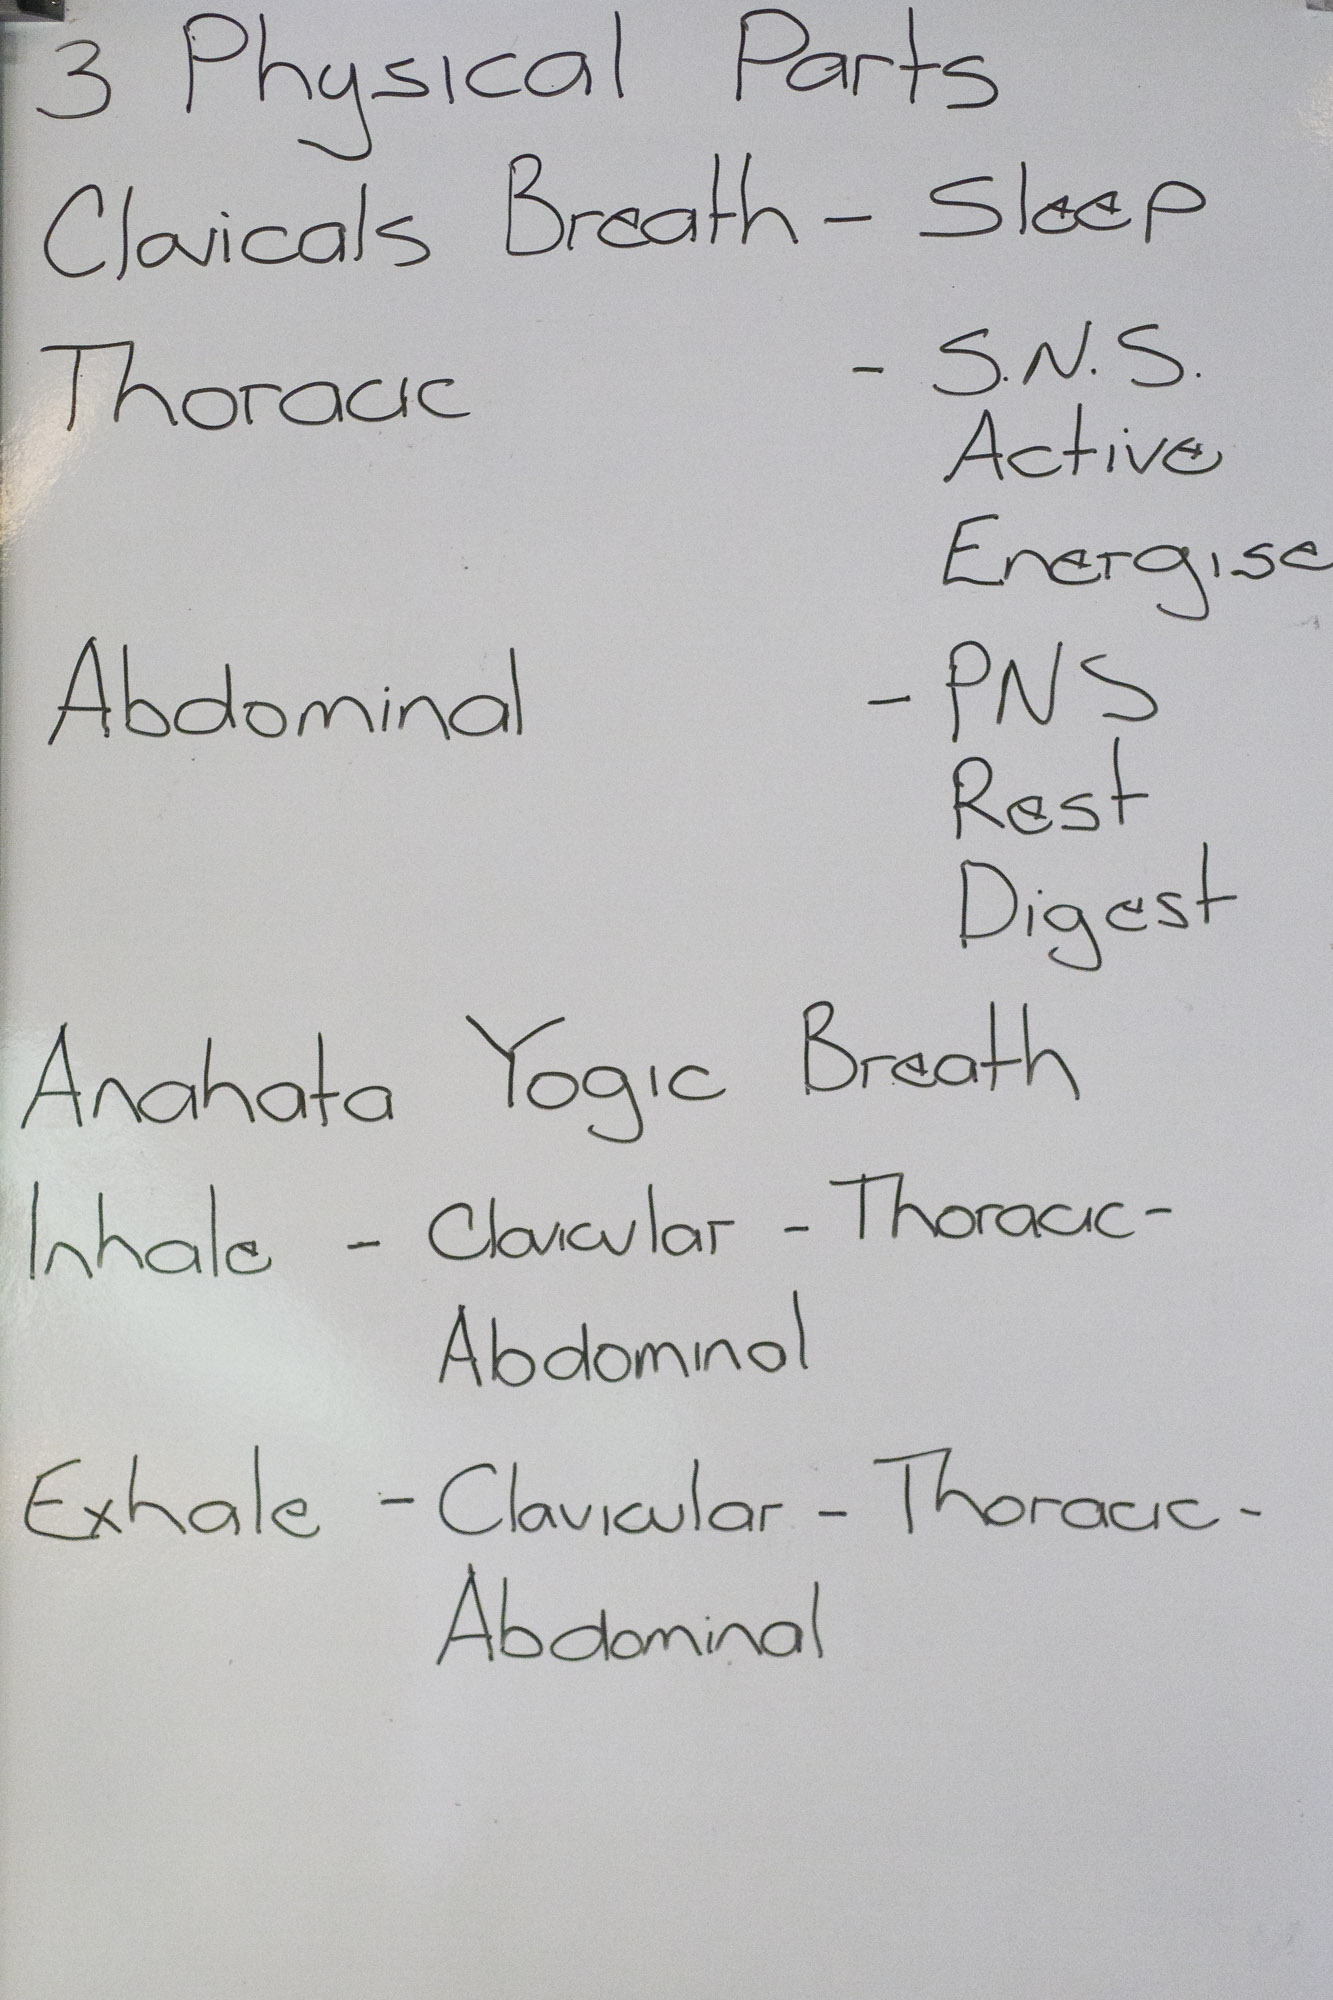 3 Physical Parts
Clavicals Breath - Sleep
Thoracic - S.N.S.
Active
Energise
Abdominal - PNS
Rest
Digest
Anahata Yogic Breath
Inhale - Clavicular - Thoracic -
Abdominal
Exhale - Clavicular - Thoracic -
Abdominal